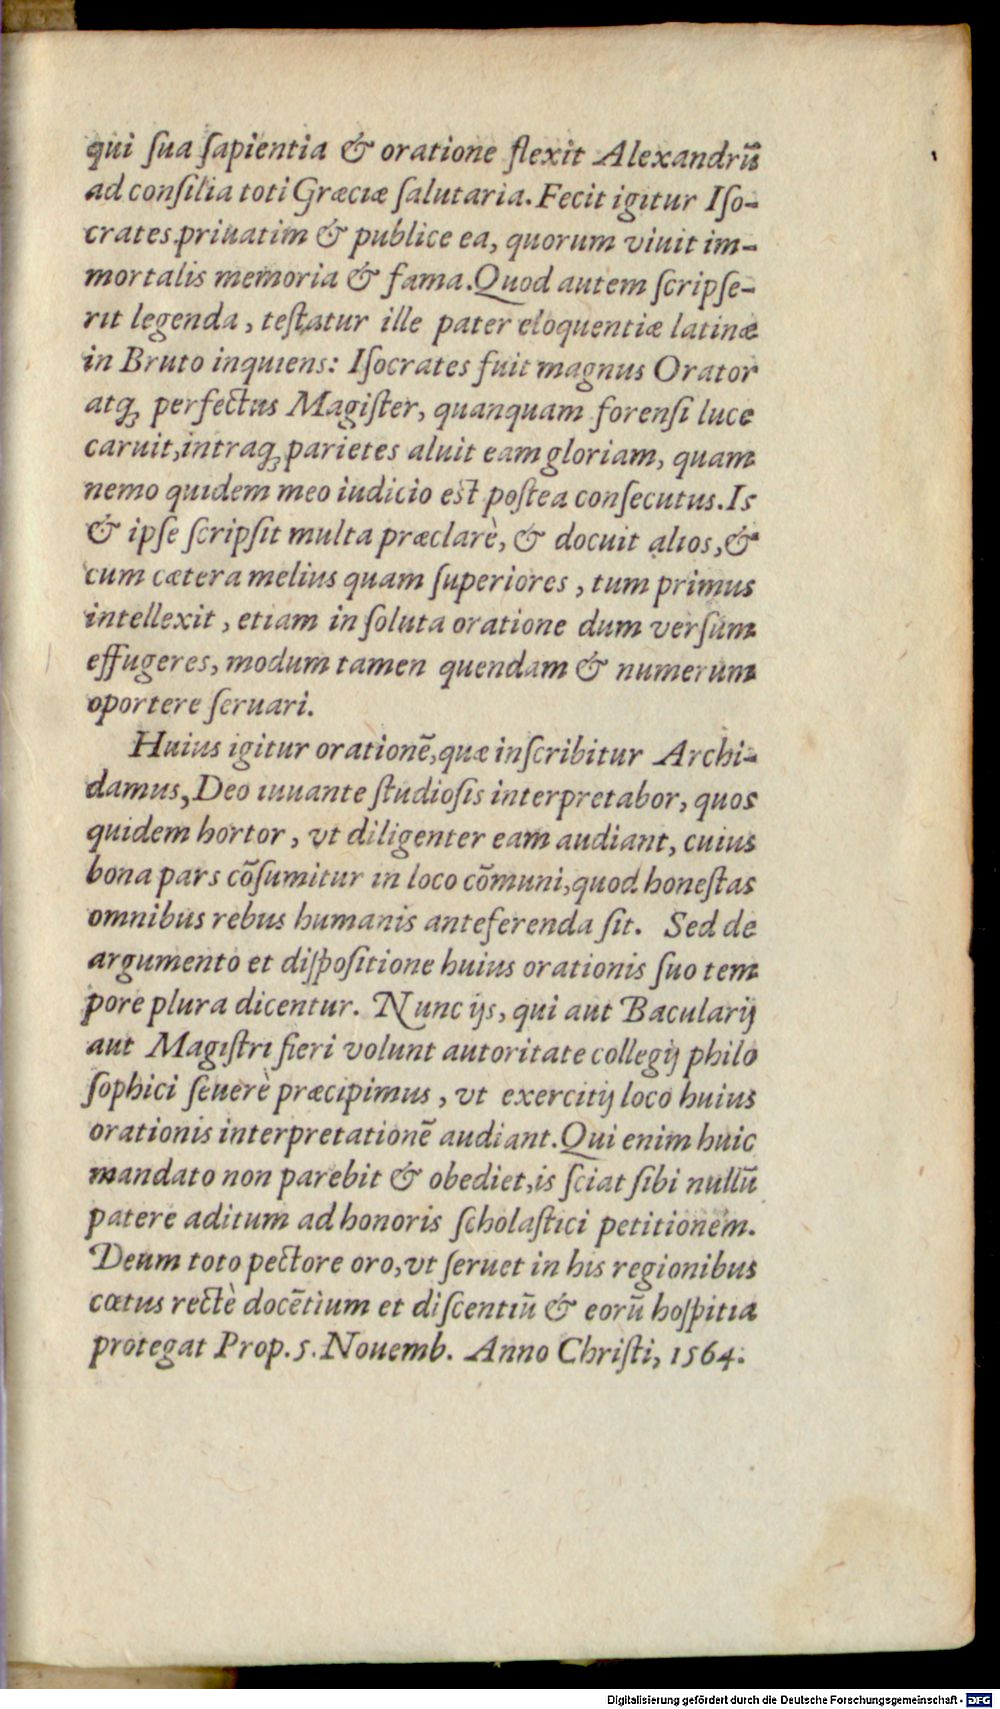 qui ſua ſapientia & oratione flexit Alexandrū
ad conſilia toti Græciæ ſalutaria. Fecit igitur Iſo-
crates priuatim & publice ea, quorum viuit im-
mortalis memoria & fama. Quod autem ſcripſe-
rit legenda, teſtatur ille pater eloquentiæ latinæ
in Bruto inquiens: Iſocrates fuit magnus Orator
atq; perfectus Magiſter, quanquam forenſi luce
caruit, intraq; parietes aluit eam gloriam, quam
nemo quidem meo iudicio eſt poſtea conſecutus. Is
& ipſe ſcripſit multa præclarè, & docuit alios, &
cum cætera melius quam ſuperiores, tum primus
intellexit, etiam in ſoluta oratione dum verſum
effugeres, modum tamen quendam & numerum
oportere ſeruari.
Huius igitur orationē, quæ inſcribitur Archi-
damus, Deo iuuante ſtudioſis interpretabor, quos
quidem hortor, vt diligenter eam audiant, cuius
bona pars cōſumitur in loco cōmuni, quod honeſtas
omnibus rebus humanis anteferenda ſit. Sed de
argumento et diſpoſitione huius orationis ſuo tem
pore plura dicentur. Nunc ijs, qui aut Bacularij
aut Magiſtri fieri volunt autoritate collegij philo
ſophici ſeuerè præcipimus, vt exercitij loco huius
orationis interpretationē audiant. Qui enim huic
mandato non parebit & obediet, is ſciat ſibi nullū
patere aditum ad honoris ſcholaſtici petitionem.
Deum toto pectore oro, vt ſeruet in his regionibus
cœtus rectè docētium et diſcentiū & eorū hoſpitia
protegat Prop. 5. Nouemb. Anno Chriſti, 1564.
Digitalisierung gefördert durch die Deutsche Forschungsgemeinschaft - DFG